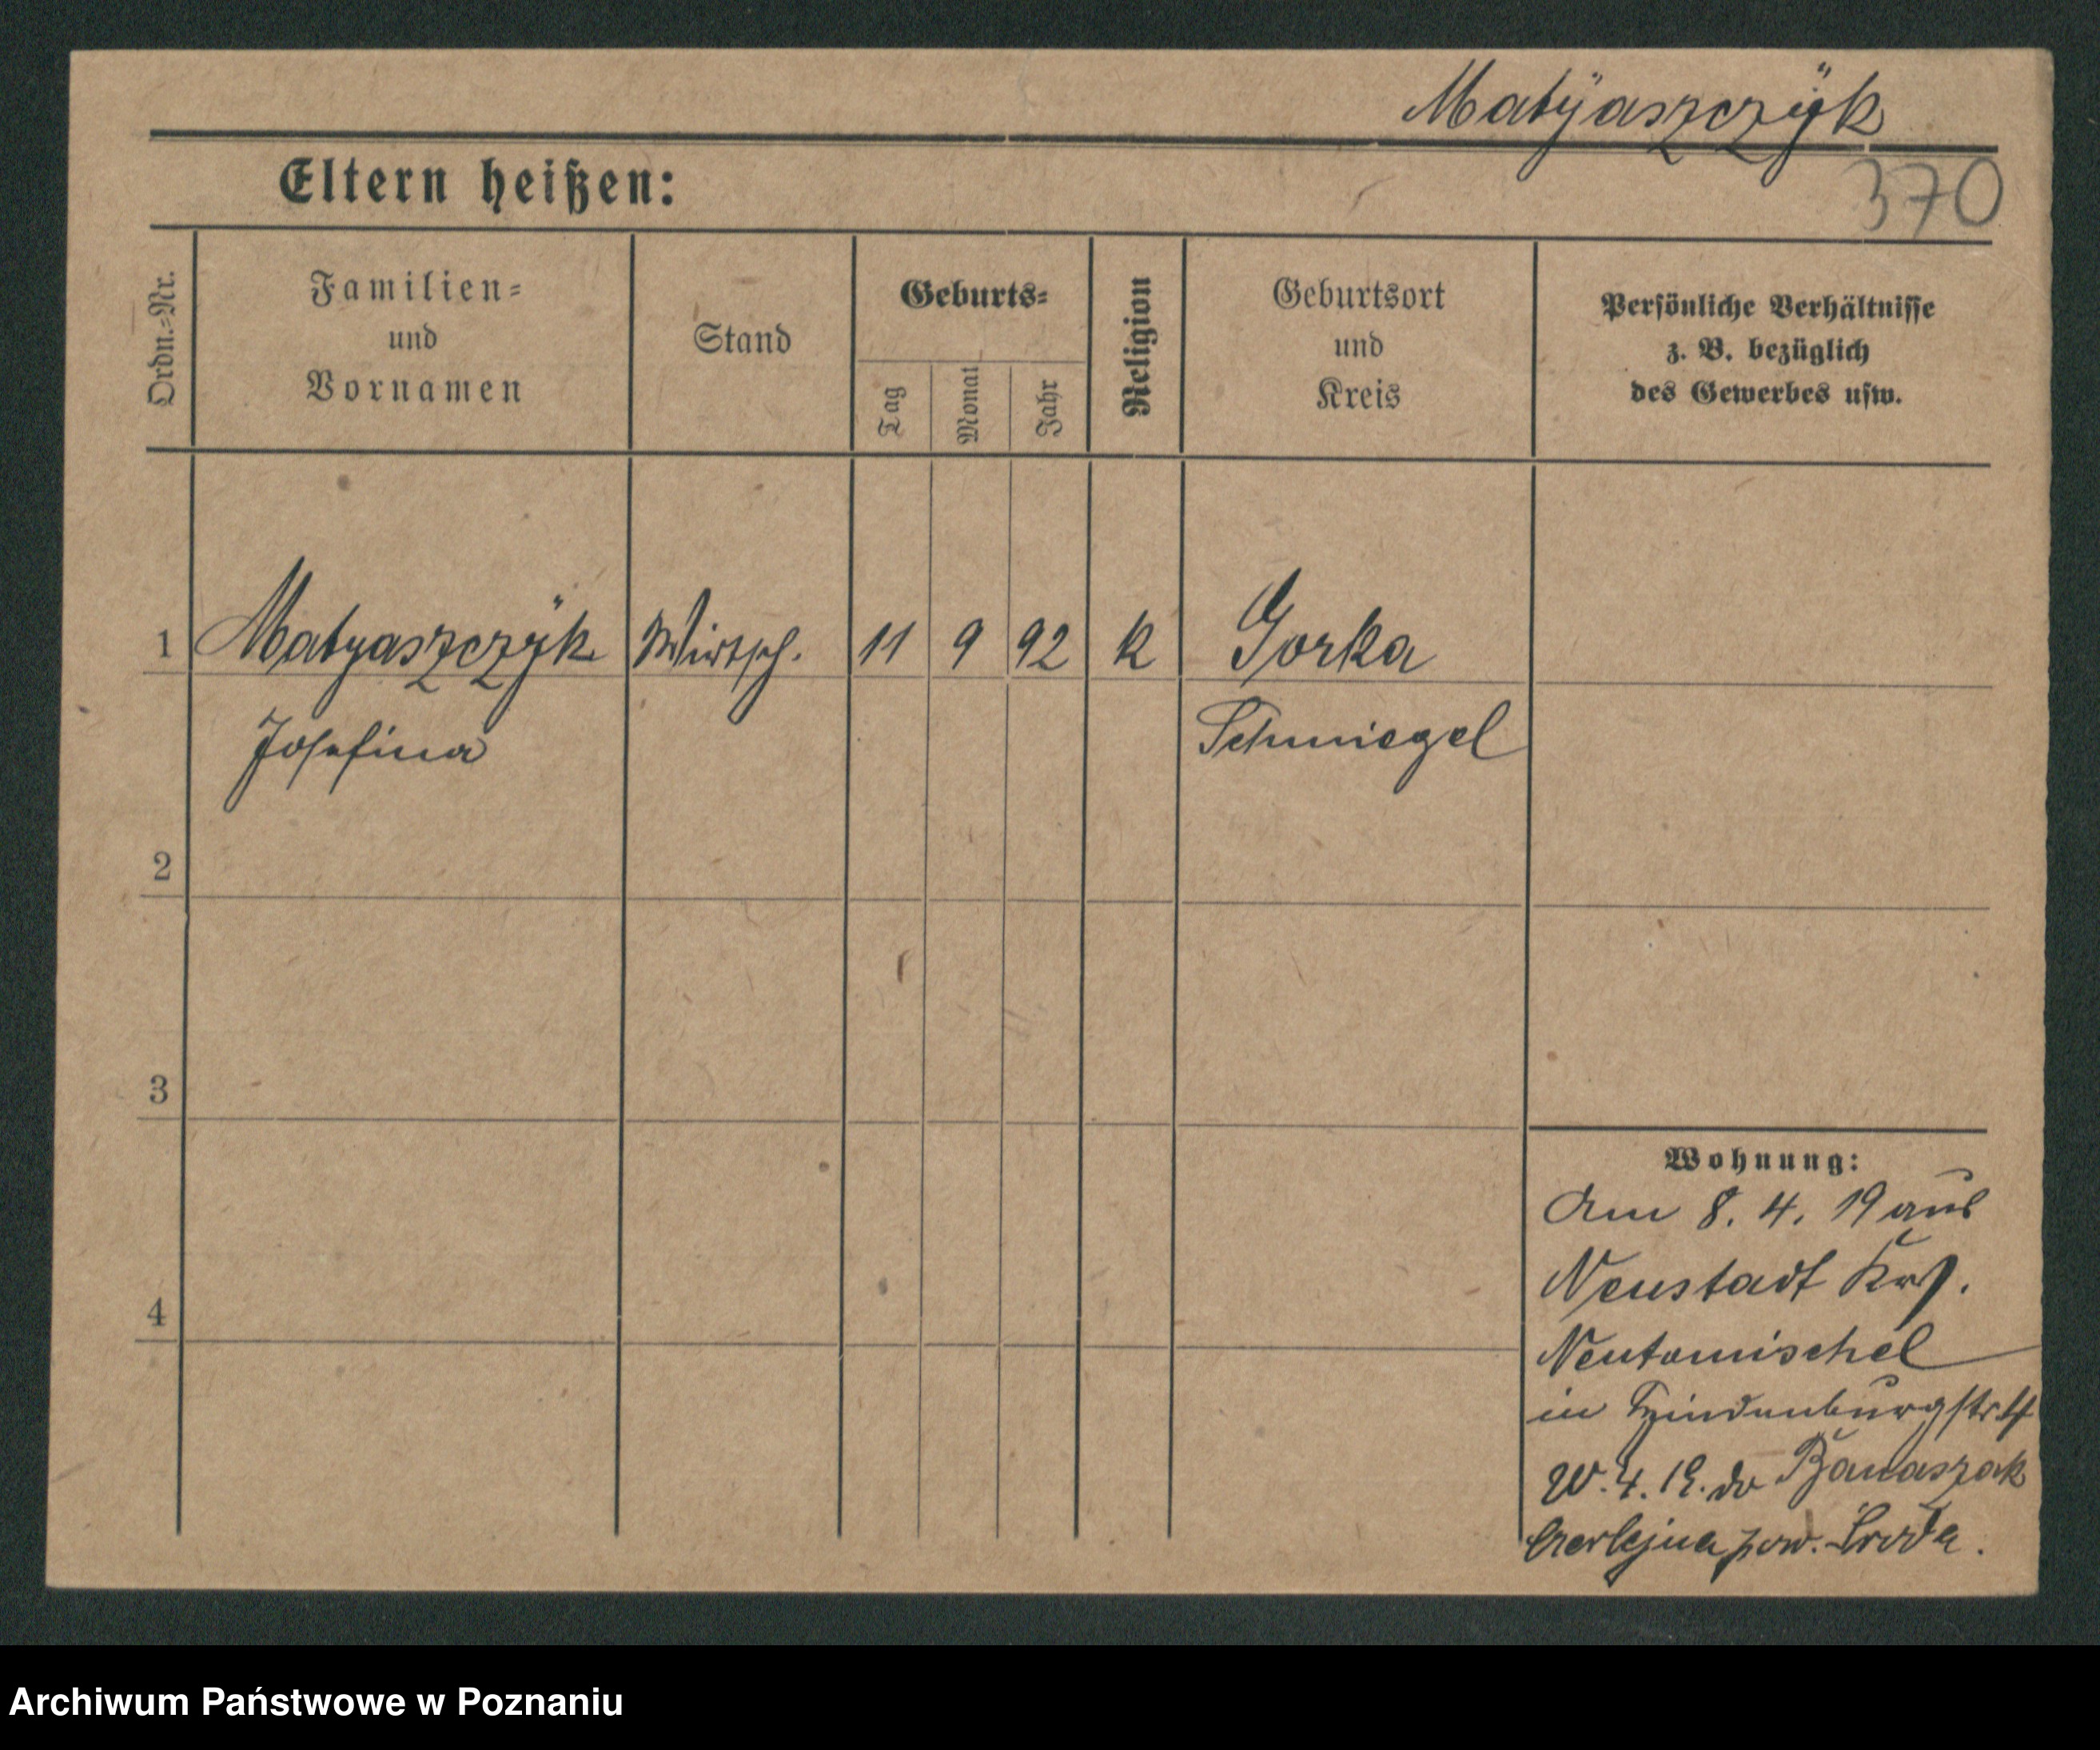 Matÿaszczÿk
370
Eltern heißen:
Ordn.-Nr.
Familien-
und
Vornamen
Stand
Geburts-
Tag
Monat
Jahr
Religion
Geburtsort
und
Kreis
Persönliche Verhältnisse
z. B. bezüglich
des Gewerbes usw.
1 Matyaszczÿk Wirtsch. 11 9 92 k Gorka
Josefina Schmiegel
2
3
4
Wohnung:
Am 8. 4. 19 aus
Neustadt Krs.
Neutomischel
in Hindenburgstr 4
W. 4. 19. do Banaszak
Czerlejna pow. Środa.
Archiwum Państwowe w Poznaniu